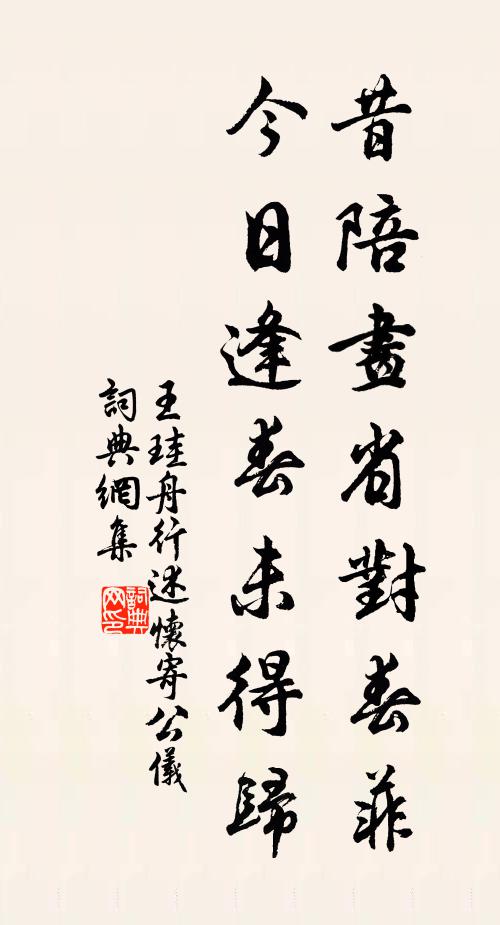 昔陪畫省對春菲
今日逢春未得歸
王珪舟行述懷寄公儀
詞典網集
詞典网印